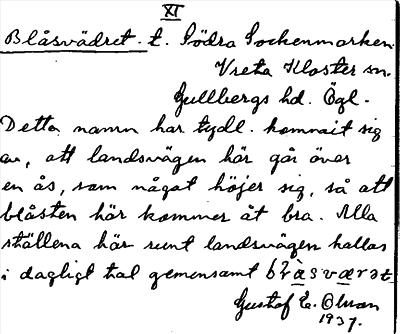 XI
Blåsvädret. t. Södra Sockenmarken
Vreta Kloster sn.
Gullbergs hd. Ögl.
Detta namn har tydl. kommit sig
av, att landsvägen här går över
en ås, som något höjer sig, så att
blåsten här kommer åt bra. Alla
ställena här runt landsvägen kallas
i dagligt tal gemensamt
Gustaf E. Olman
1937.